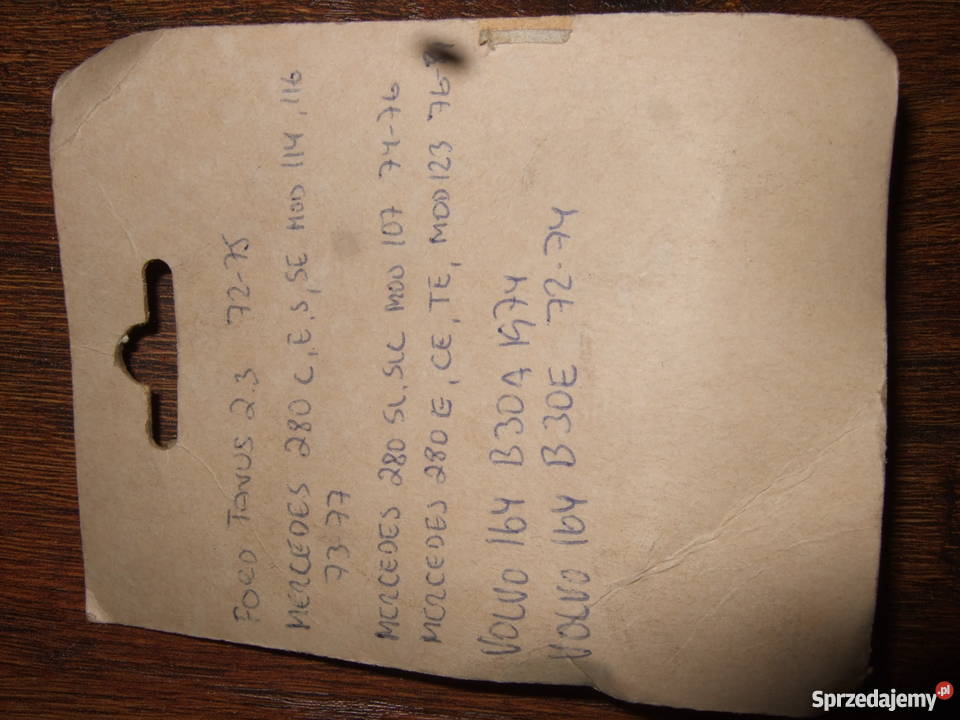 FORD TANUS 2.3 72-75
MERCEDES 280 C, E, S, SE MOD 114, 116
73-77
MERCEDES 280 SL, SLC MOD 107 74-76
MERCEDES 280 E, CE, TE, MOD 123 76-
VOLVO 164 B30A 1974
VOLVO 164 B30E 72-74
Sprzedajemy.pl